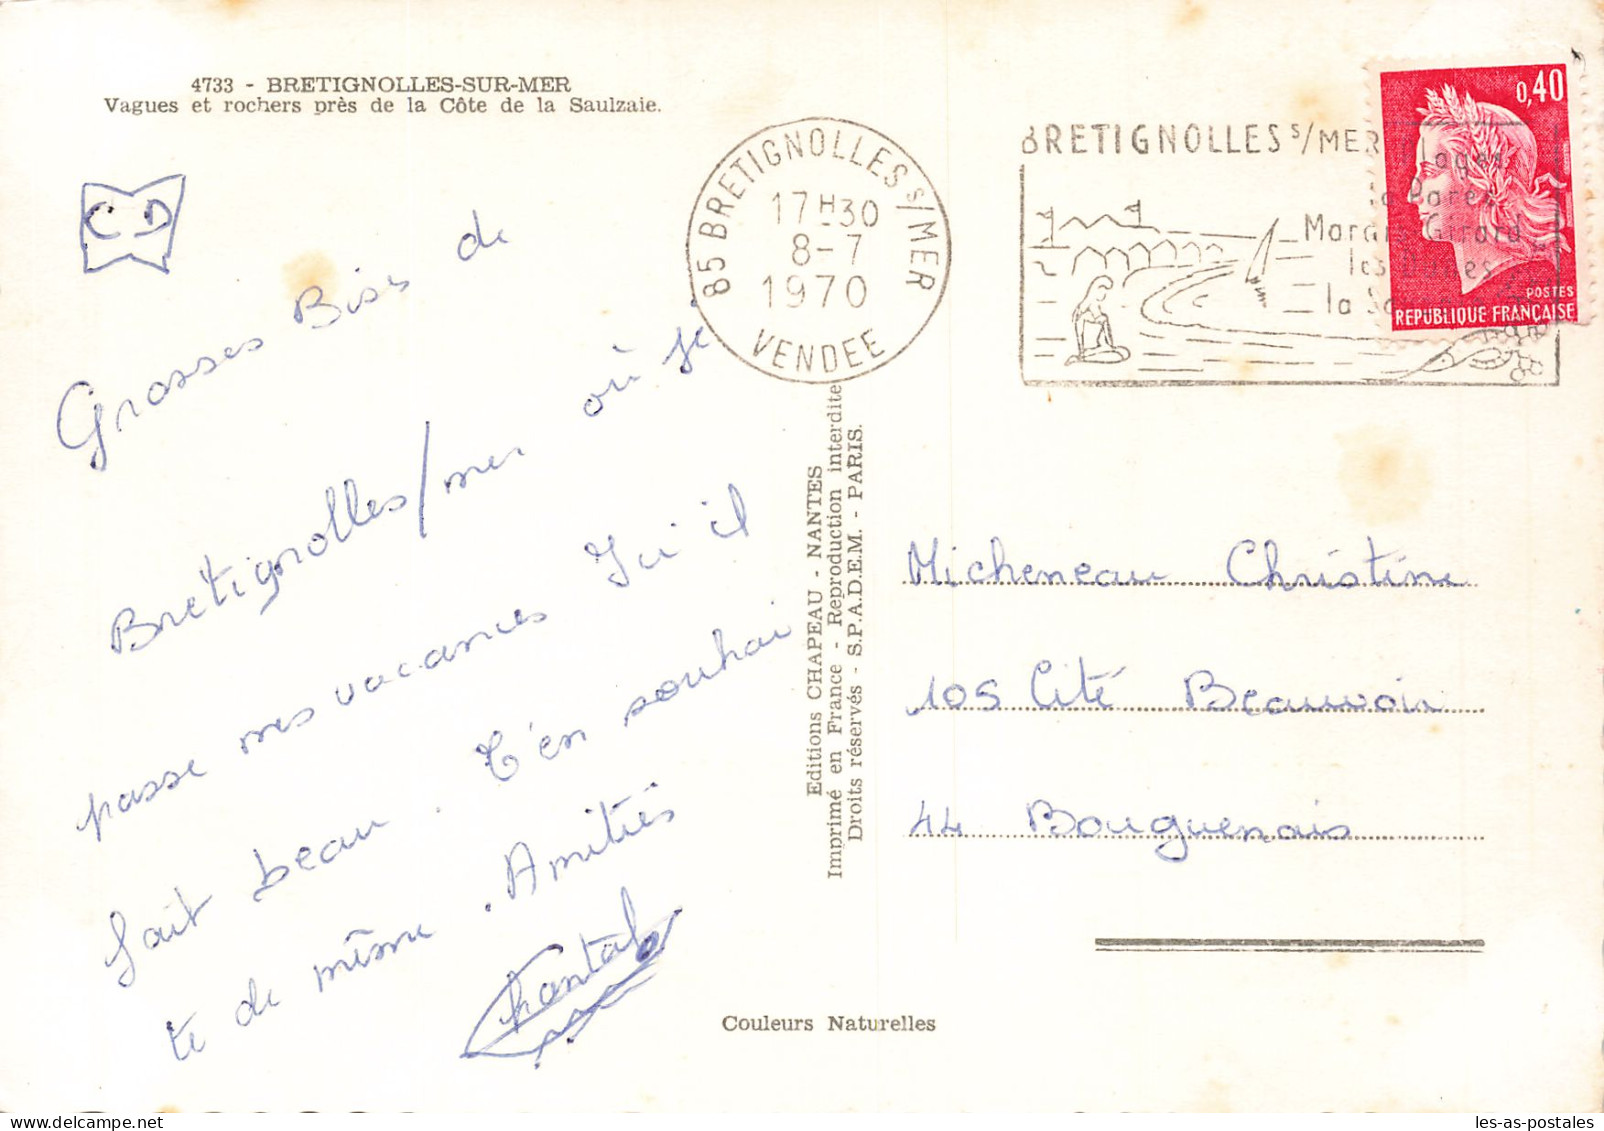 4733 - BRETIGNOLLES-SUR-MER
Vagues et rochers près de la Côte de la Saulzaie.
C D
Grosses Bises de
Bretignolles/mer où je
passe mes vacances Ici il
fait beau. T'en souhai
te de même. Amitiés
Chantal
85 BRETIGNOLLES S/MER
17H30
8-7
1970
VENDEE
BRETIGNOLLES S/MER
la Parée
Marais Girard
les Dunes
la
0,40
POSTES
REPUBLIQUE FRANÇAISE
Editions CHAPEAU - NANTES
Imprimé en France - Reproduction interdite
Droits réservés - S.P.A.D.E.M. - PARIS.
Micheneau Christine
105 Cité Beauvoir
44 Bouguenais
Couleurs Naturelles
les-as-postales.com